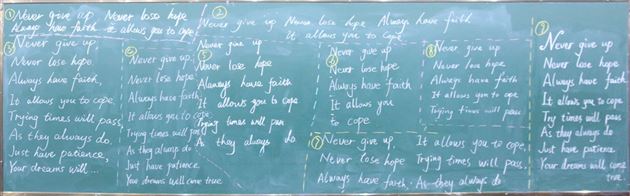 ① Never give up Never lose hope
Always have faith It allows you to cope
② Never give up Never lose hope Always have faith
It allows you to cope
③ Never give up,
Never lose hope.
Always have faith,
It allows you to cope,
Trying times will pass,
As they always do.
Just have patience,
Your dreams will...
④ Never give up,
Never lose hope.
Always have faith
It allows you to cope
Trying times will pass
As they always do
Just have patience
Your dreams will come true
⑤ Never give up
Never lose hope
Always have faith
It allows you to cope
Trying times will pass
As they always do
Never give up
Never lose hope
Always have faith
It allows you
to cope
⑧ Never give up
Never lose hope
Always have faith
It allows you to cope
Trying times will pass
⑦ Never give up, It allows you to cope,
Never lose hope Trying times will pass.
Always have faith, As they always do
Never give up
Never lose hope
Always have faith
It allows you to cope.
Try times will pass
As they always do
Just have patience
Your dreams will come
true